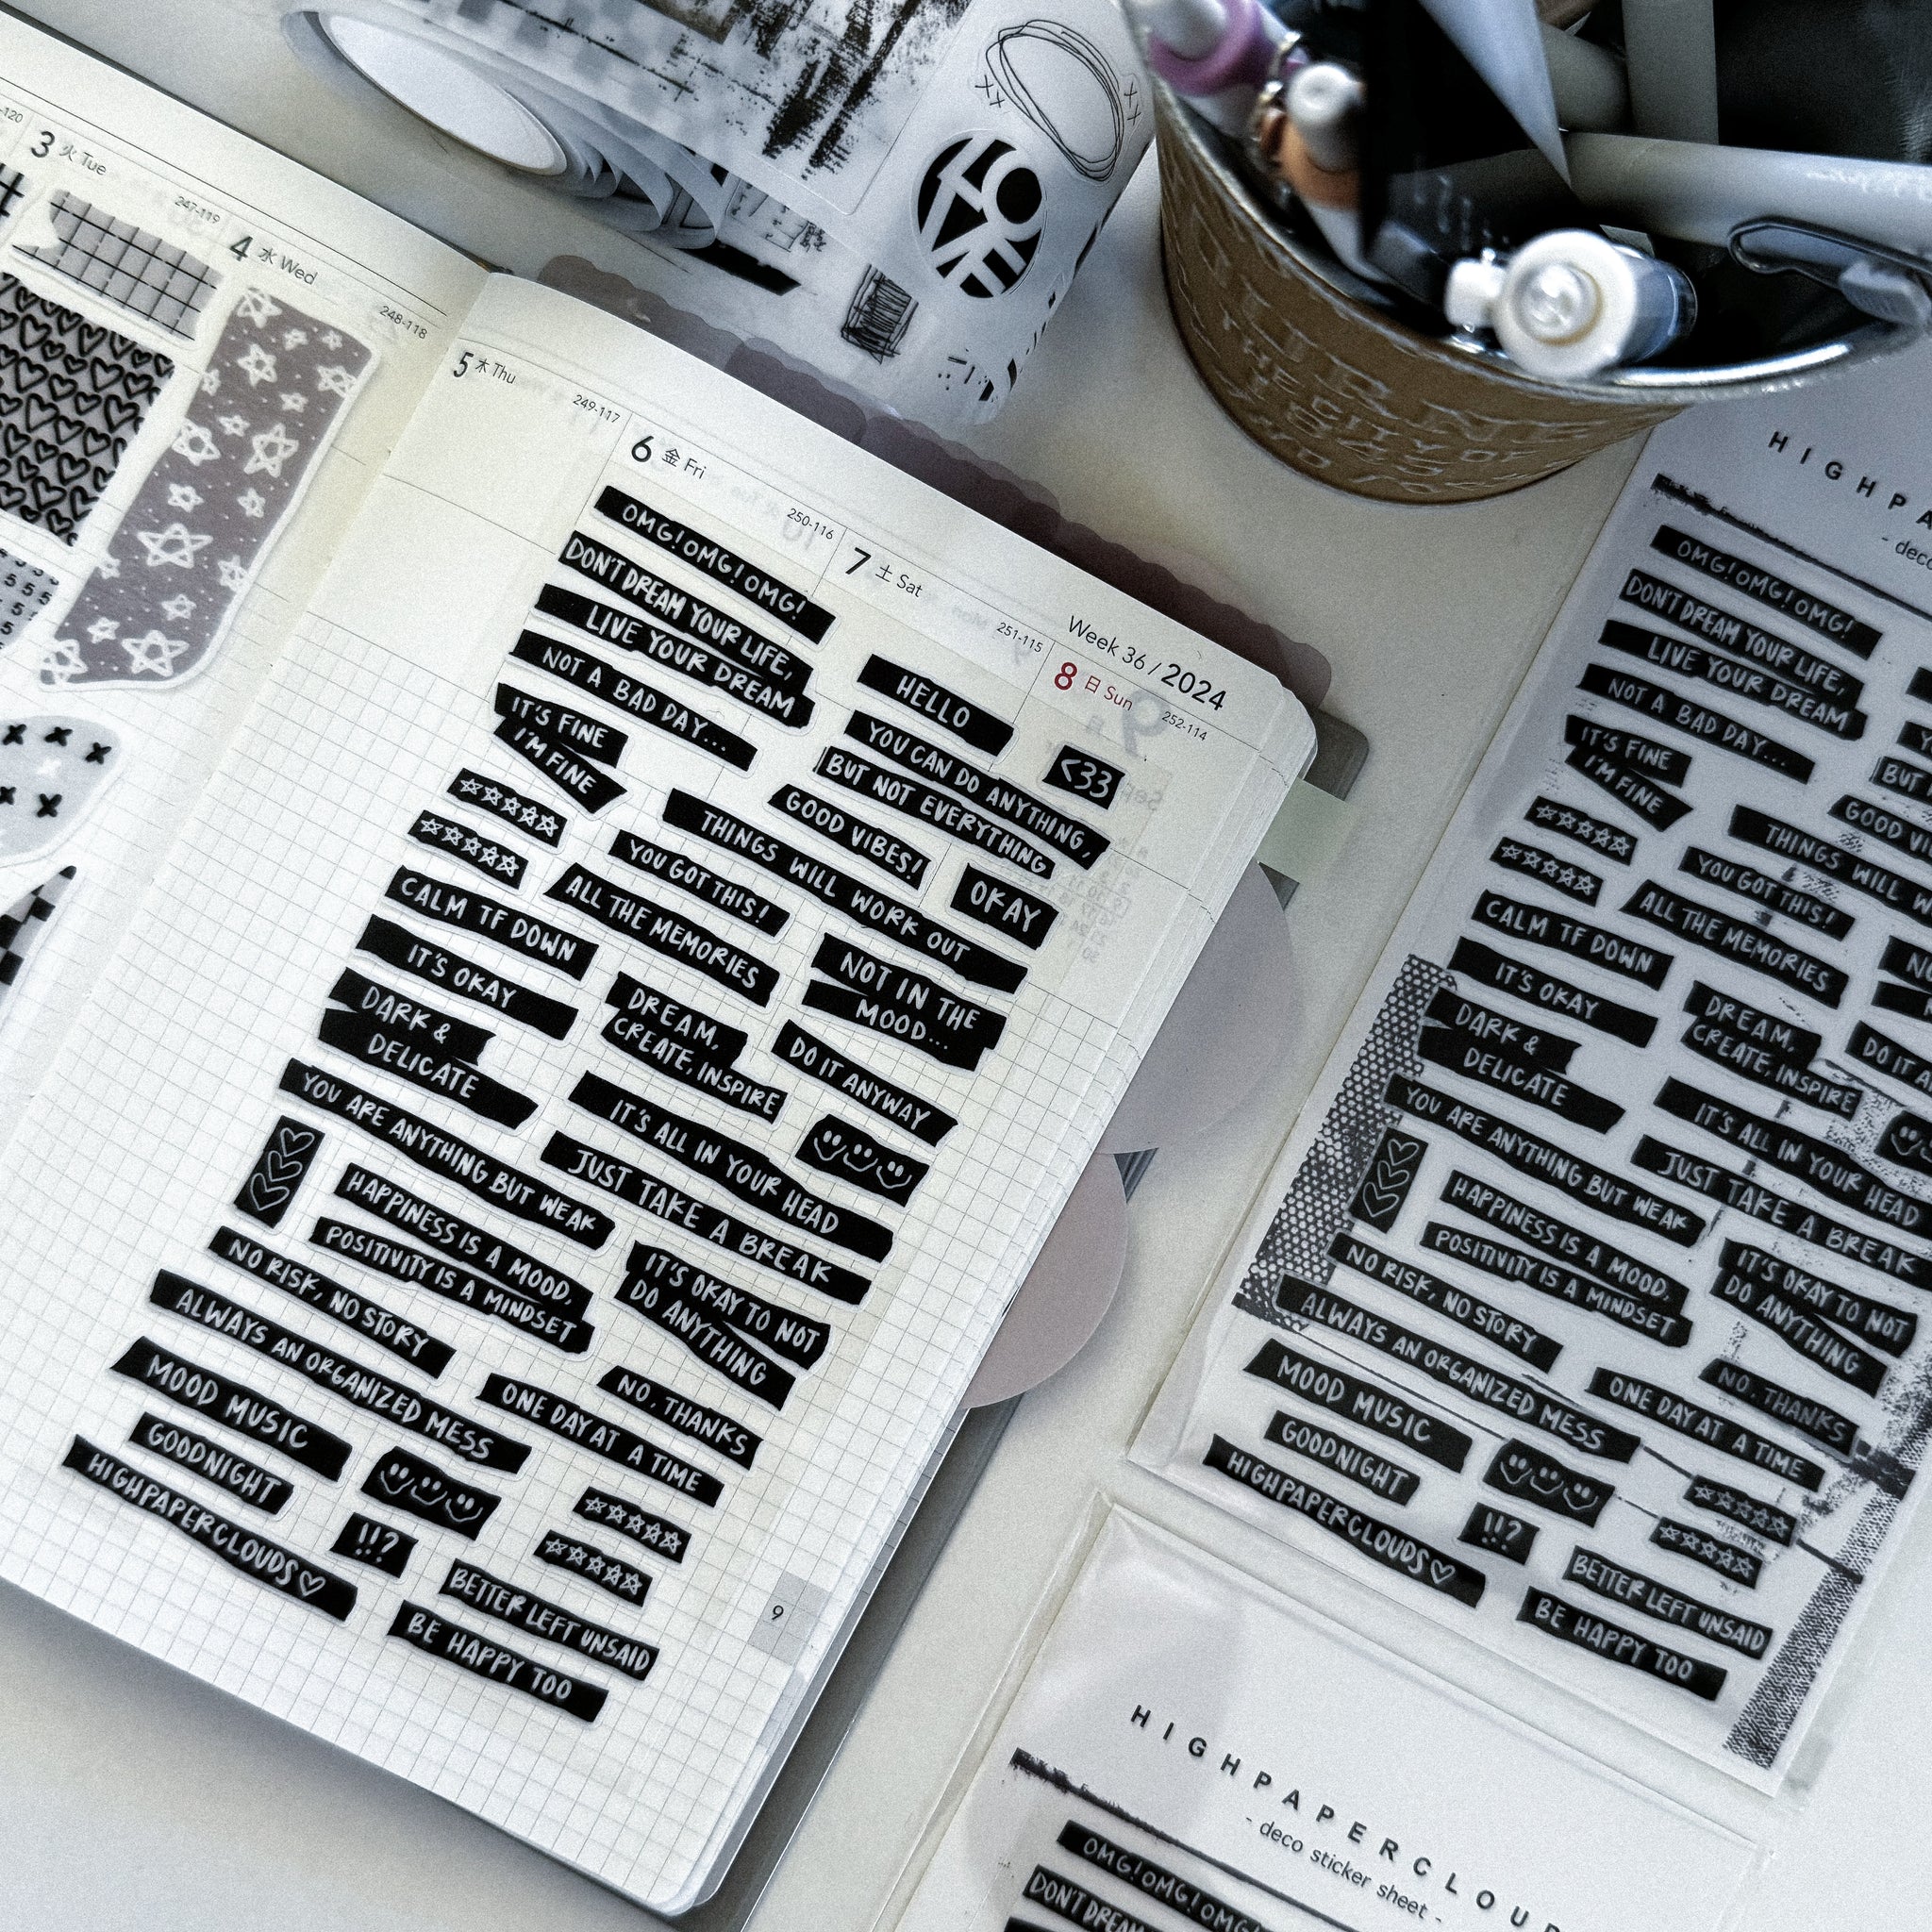 120
3 火 Tue
247-119
4 水 Wed
248-118
5 木 Thu
249-117
6 金 Fri
250-116
7 土 Sat
251-115
Week 36 / 2024
8 日 Sun
252-114
LOVE
OMG! OMG! OMG!
DON'T DREAM YOUR LIFE,
LIVE YOUR DREAM
NOT A BAD DAY...
IT'S FINE
I'M FINE
HELLO
YOU CAN DO ANYTHING,
BUT NOT EVERYTHING
<33
GOOD VIBES!
THINGS WILL WORK OUT
OKAY
YOU GOT THIS!
CALM TF DOWN
ALL THE MEMORIES
IT'S OKAY
NOT IN THE
MOOD...
DARK &
DELICATE
DREAM,
CREATE, INSPIRE
DO IT ANYWAY
YOU ARE ANYTHING BUT WEAK
IT'S ALL IN YOUR HEAD
JUST TAKE A BREAK
HAPPINESS IS A MOOD,
POSITIVITY IS A MINDSET
IT'S OKAY TO NOT
DO ANYTHING
NO RISK, NO STORY
ALWAYS AN ORGANIZED MESS
NO, THANKS
ONE DAY AT A TIME
MOOD MUSIC
GOODNIGHT
HIGHPAPERCLOUDS♡
!!?
BETTER LEFT UNSAID
BE HAPPY TOO
9
THE CITY OF
HIGHPA
- deco
OMG! OMG! OMG!
DON'T DREAM YOUR LIFE,
LIVE YOUR DREAM
NOT A BAD DAY...
IT'S FINE
I'M FINE
BUT
GOOD VI
THINGS WILL W
YOU GOT THIS!
CALM TF DOWN
ALL THE MEMORIES
IT'S OKAY
DARK &
DELICATE
DREAM,
CREATE, INSPIRE
DO IT A
YOU ARE ANYTHING BUT WEAK
IT'S ALL IN YOUR HEAD
JUST TAKE A BREAK
HAPPINESS IS A MOOD,
POSITIVITY IS A MINDSET
IT'S OKAY TO NOT
DO ANYTHING
NO RISK, NO STORY
ALWAYS AN ORGANIZED MESS
NO, THANKS
ONE DAY AT A TIME
MOOD MUSIC
GOODNIGHT
HIGHPAPERCLOUDS♡
!!?
BETTER LEFT UNSAID
BE HAPPY TOO
HIGHPAPERCLOUD
- deco sticker sheet -
OMG! OMG! OMG!
DON'T DREAM